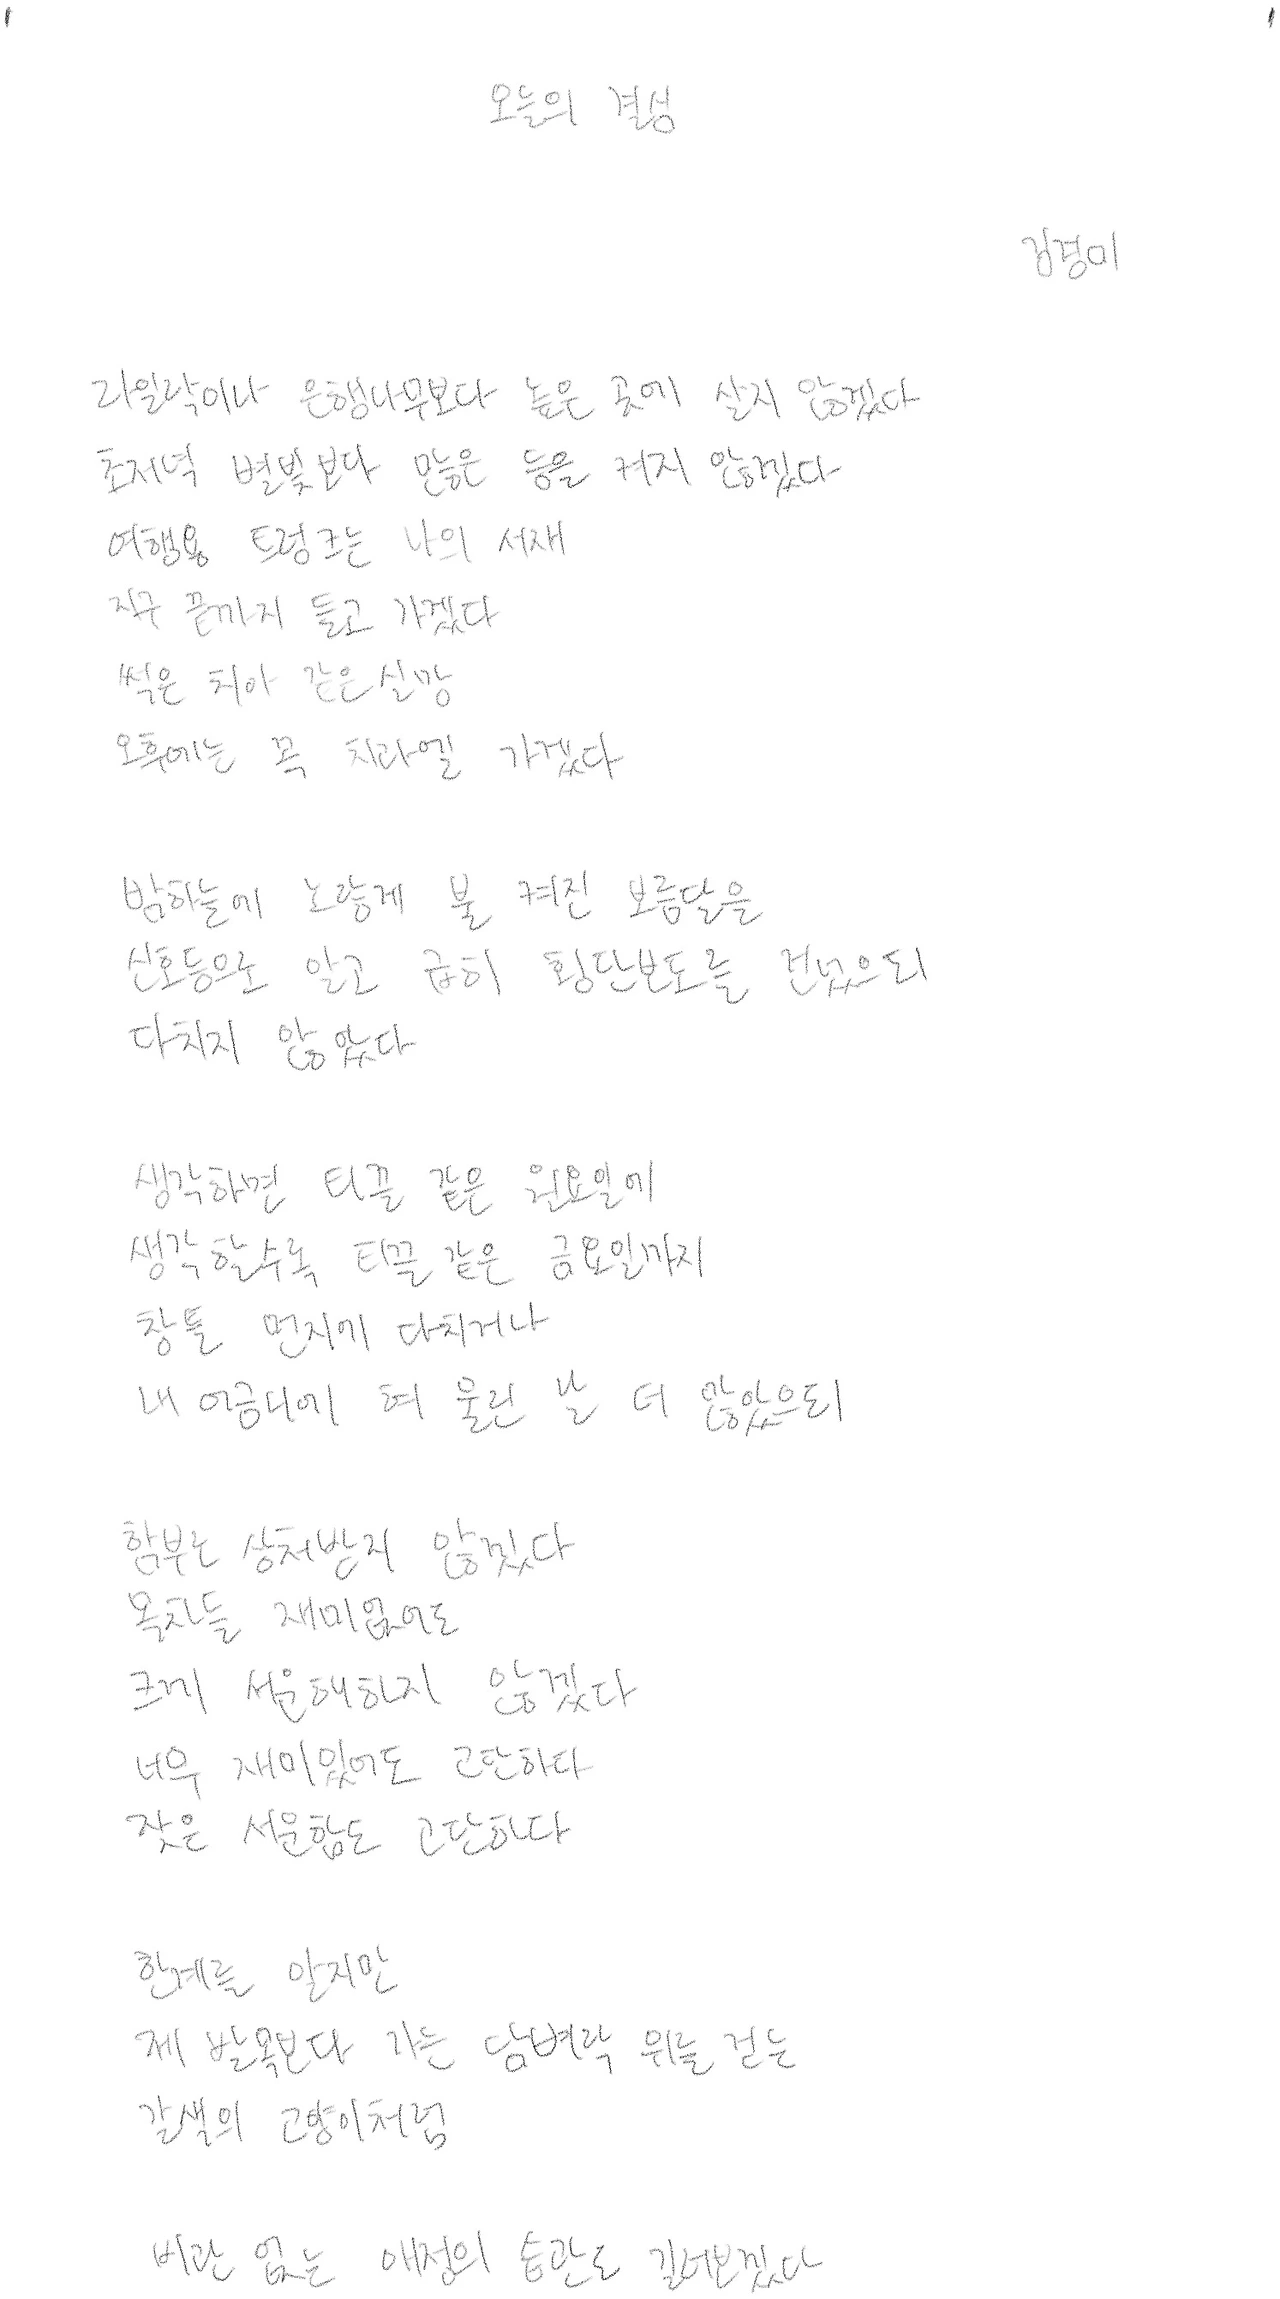 오늘의 결심
김경미
라일락이나 은행나무보다 높은 곳에 살지 않겠다
초저녁 별빛보다 많은 등을 켜지 않겠다
여행용 트렁크는 나의 서재
지구 끝까지 들고 가겠다
썩은 치아 같은 실망
오후에는 꼭 치과엘 가겠다
밤하늘에 노랗게 불 켜진 보름달을
신호등으로 알고 급히 횡단보도를 건넜으되
다치지 않았다
생각하면 티끌 같은 월요일에
생각할수록 티끌 같은 금요일까지
창틀 먼지에 다치거나
내 어금니에 혀 물린 날 더 많았으되
함부로 상처받지 않겠다
목차들 재미없어도
크게 서운해하지 않겠다
너무 재미있어도 고단하다
잦은 서운함도 고단하다
한계를 알지만
제 발목보다 가는 담벼락 위를 걷는
갈색의 고양이처럼
비관 없는 애정의 습관도 길러보겠다